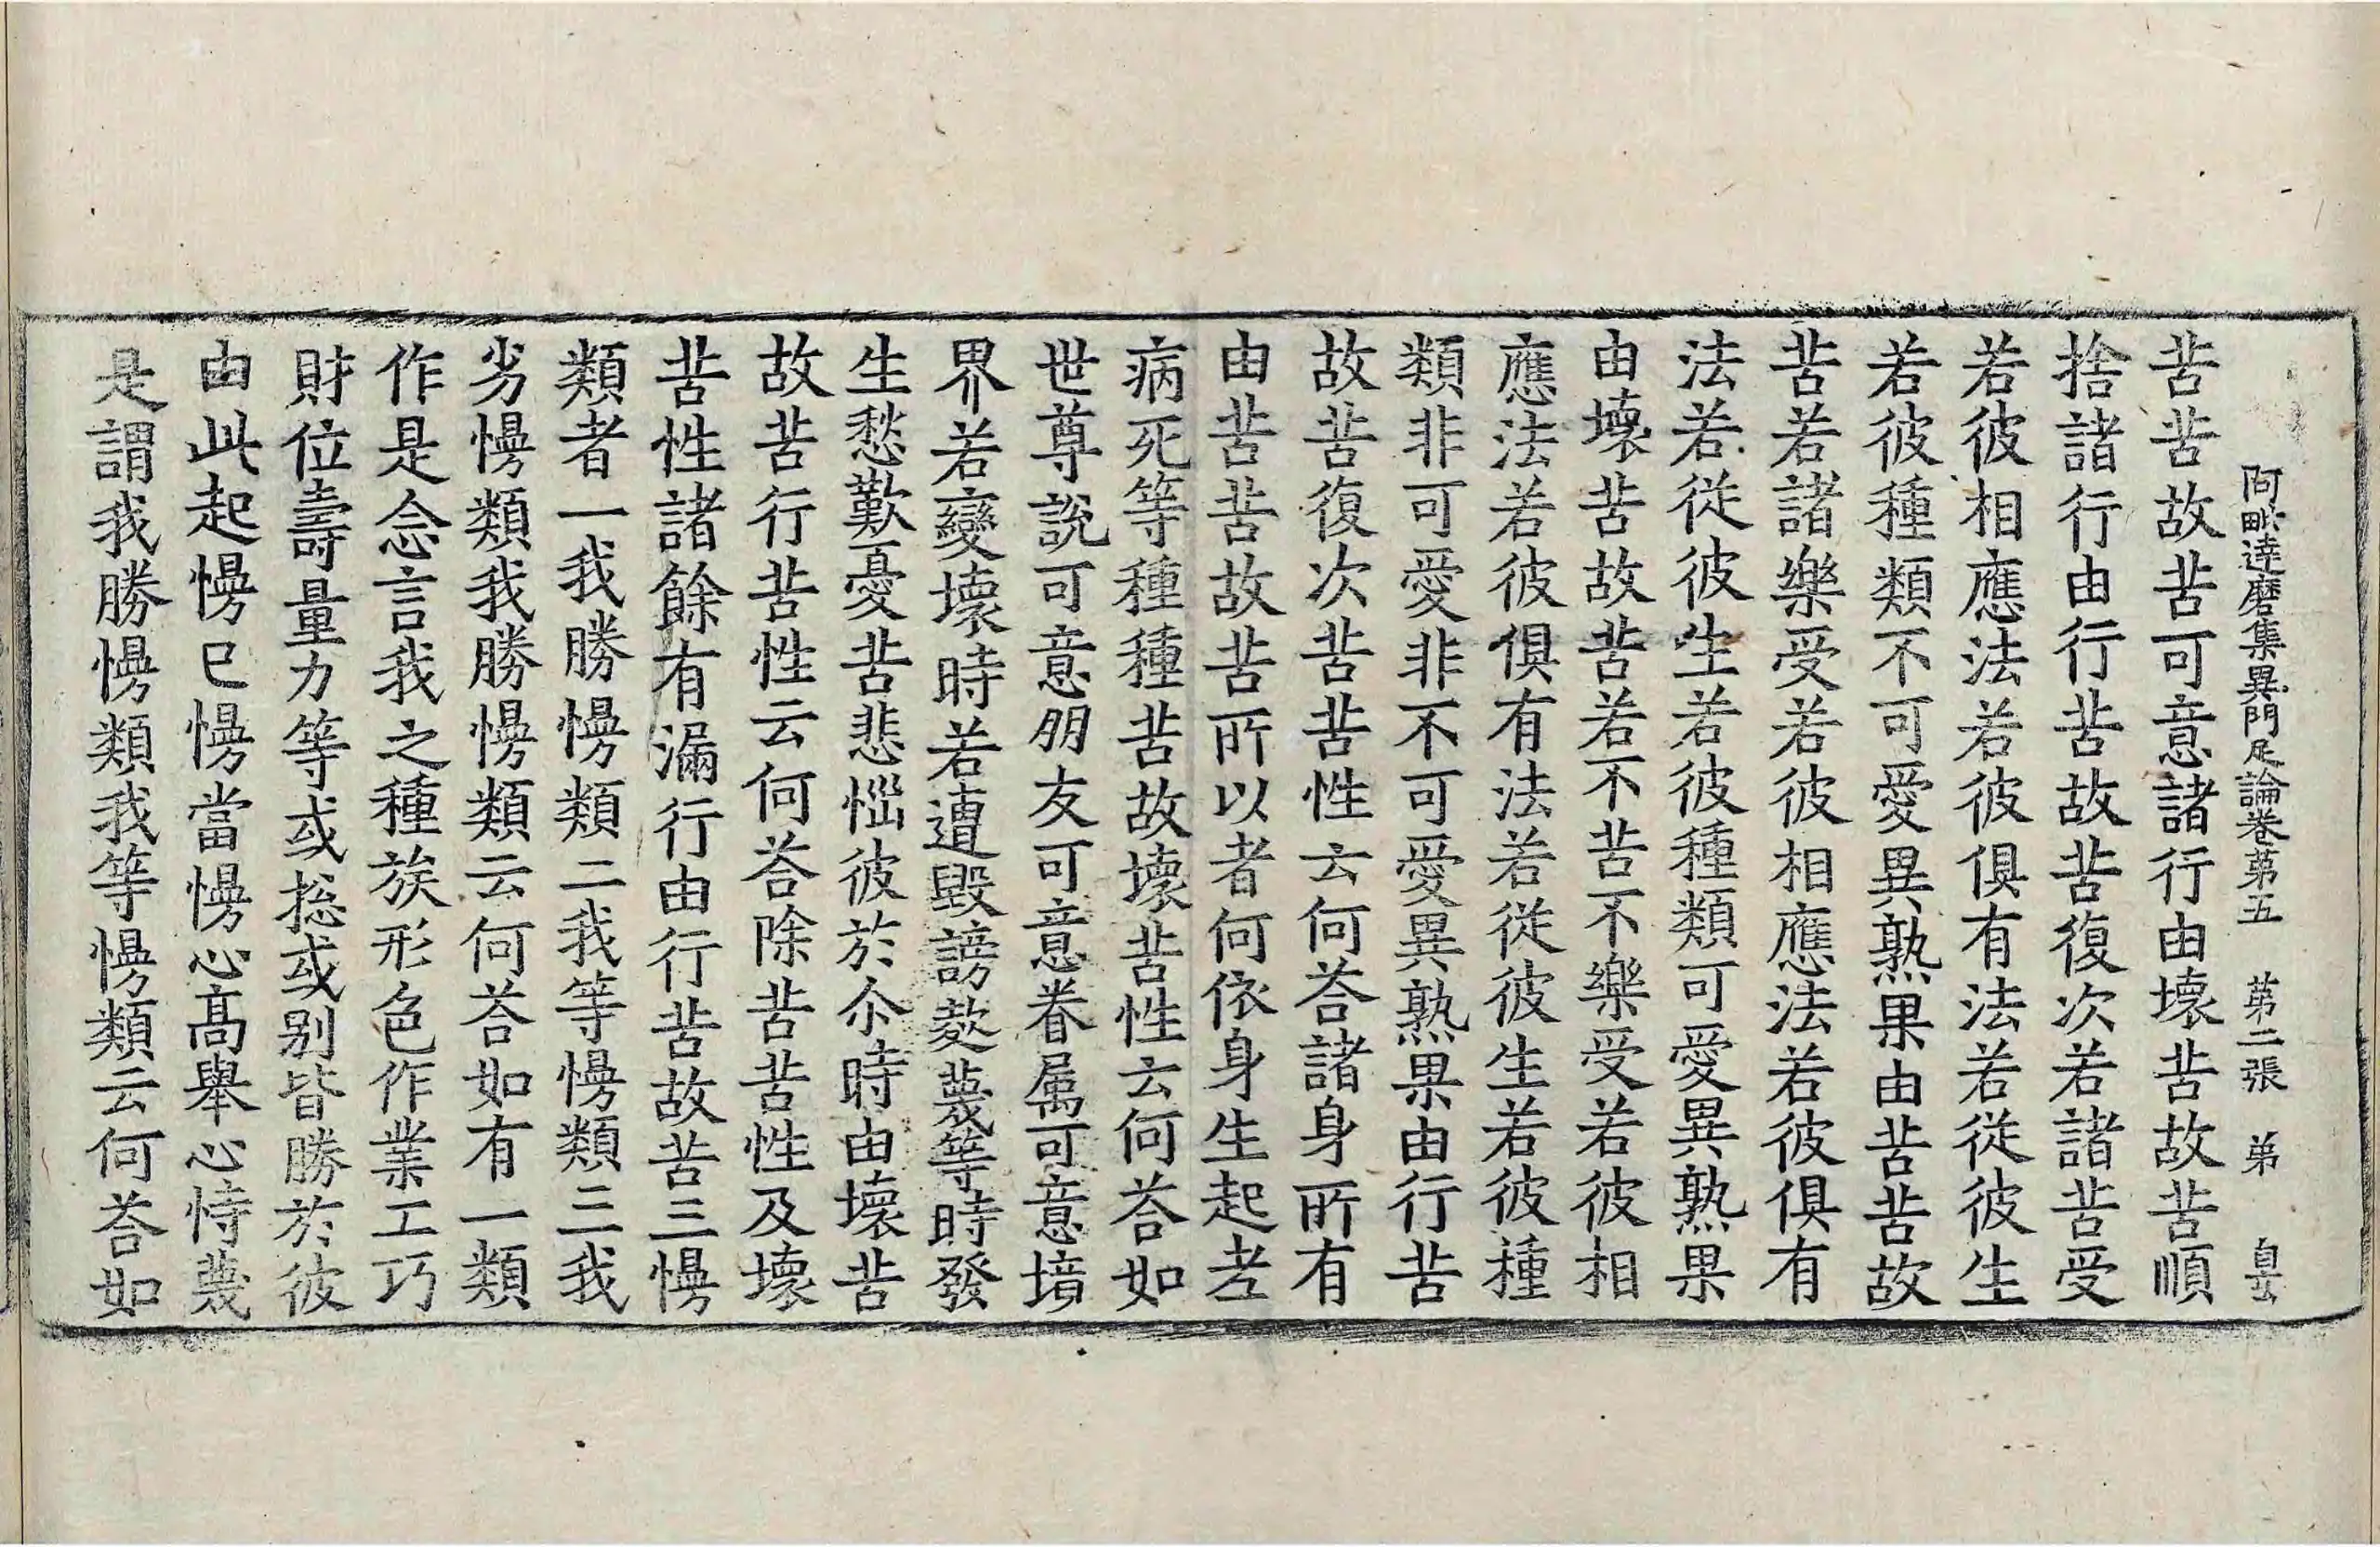 阿毗達磨集異門足論卷第五　第二張　弟
苦苦故苦可意諸行由壞苦故苦順
捨諸行由行苦故苦復次若諸苦受
若彼相應法若彼俱有法若從彼生
若彼種類不可愛異熟果由苦苦故
苦若諸樂受若彼相應法若彼俱有
法若從彼生若彼種類可愛異熟果
由壞苦故苦若不苦不樂受若彼相
應法若彼俱有法若從彼生若彼種
類非可愛非不可愛異熟果由行苦
故苦復次苦苦性云何荅諸身所有
由苦苦故苦所以者何依身生起老
病死等種種苦故壞苦性云何荅如
世尊說可意朋友可意眷属可意境
界若變壞時若遭毀謗欺蔑等時發
生愁歎憂苦悲惱彼於尒時由壞苦
故苦行苦性云何荅除苦苦性及壞
苦性諸餘有漏行由行苦故苦三慢
類者一我勝慢類二我等慢類三我
劣慢類我勝慢類云何荅如有一類
作是念言我之種族形色作業工巧
財位壽量力等或捴或别皆勝於彼
由此起慢已慢當慢心高舉心恃蔑
是謂我勝慢類我等慢類云何荅如